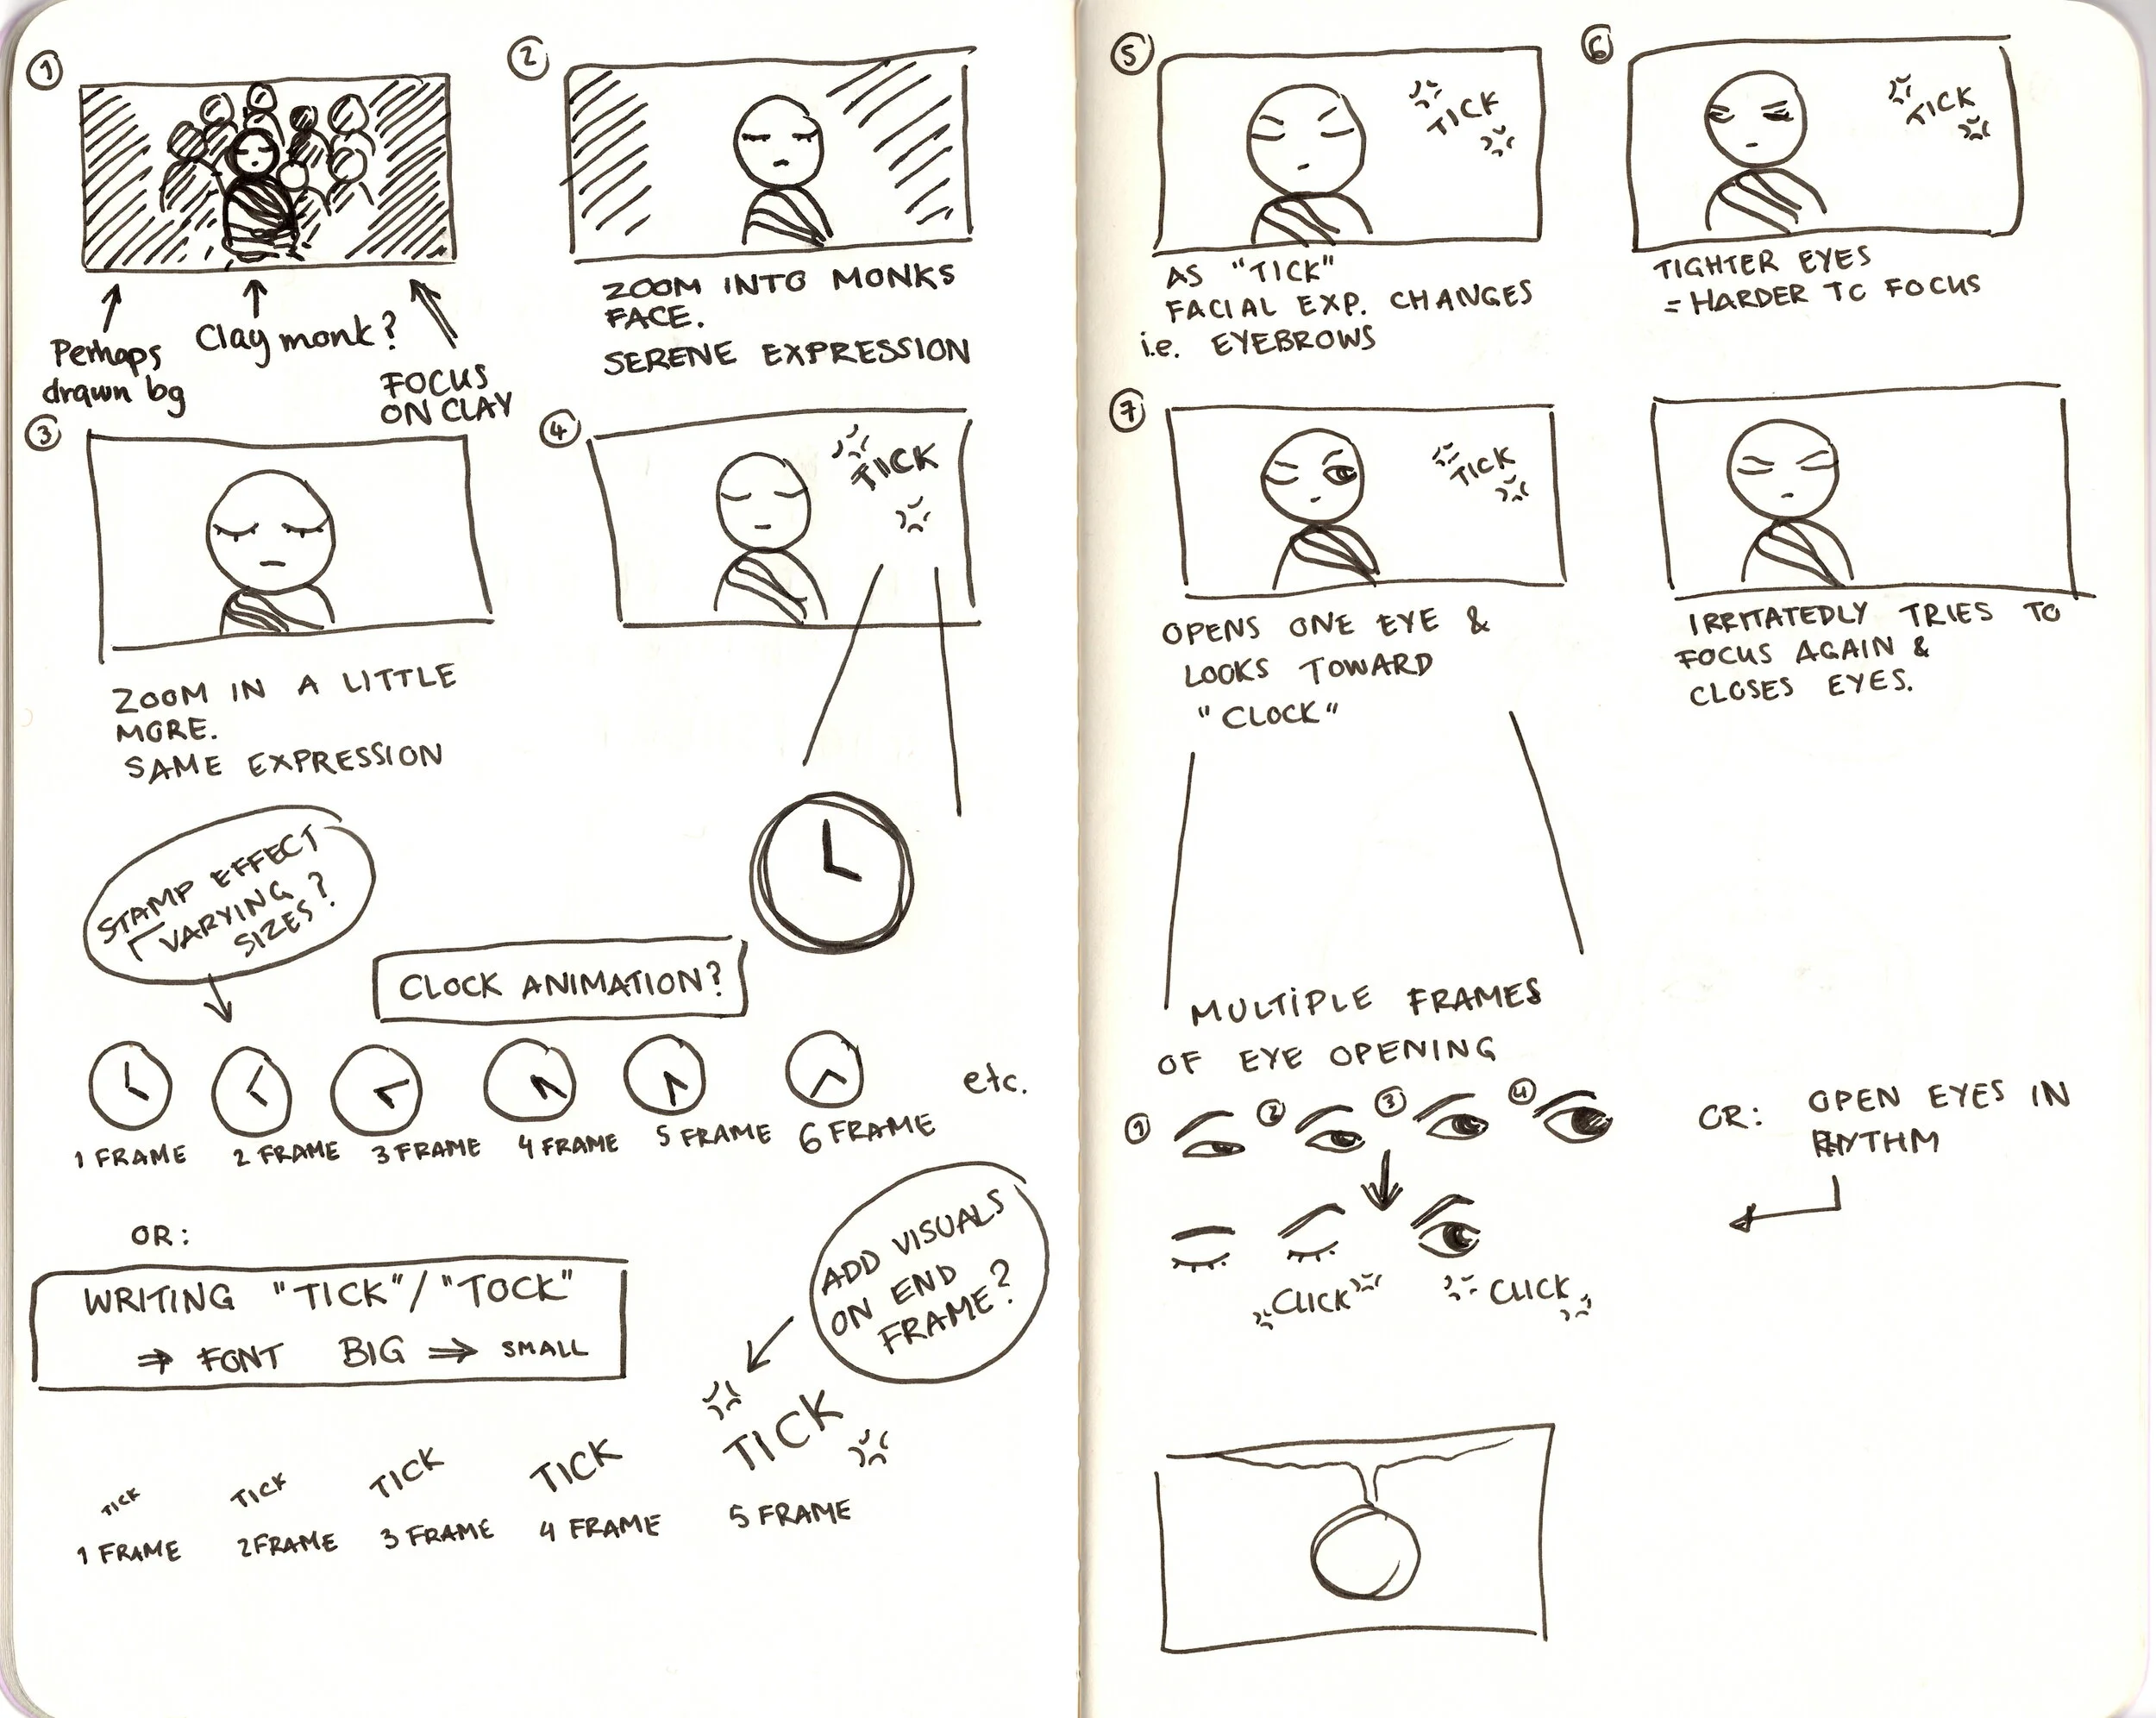 1
Perhaps
drawn bg
Clay monk?
FOCUS
ON CLAY
2
ZOOM INTO MONKS
FACE.
SERENE EXPRESSION
3
ZOOM IN A LITTLE
MORE.
SAME EXPRESSION
4
TICK
STAMP EFFECT
VARYING
SIZES?
CLOCK ANIMATION?
1 FRAME
2 FRAME
3 FRAME
4 FRAME
5 FRAME
6 FRAME
etc.
OR:
WRITING "TICK"/"TOCK"
⇒ FONT BIG ⇒ SMALL
ADD VISUALS
ON END
FRAME?
TICK
TICK
TICK
TICK
TICK
1 FRAME
2 FRAME
3 FRAME
4 FRAME
5 FRAME
5
TICK
AS "TICK"
FACIAL EXP. CHANGES
i.e. EYEBROWS
6
TICK
TIGHTER EYES
= HARDER TO FOCUS
7
TICK
OPENS ONE EYE &
LOOKS TOWARD
"CLOCK"
IRRITATEDLY TRIES TO
FOCUS AGAIN &
CLOSES EYES.
MULTIPLE FRAMES
OF EYE OPENING
1
2
3
4
OR: OPEN EYES IN
RHYTHM
CLICK
CLICK